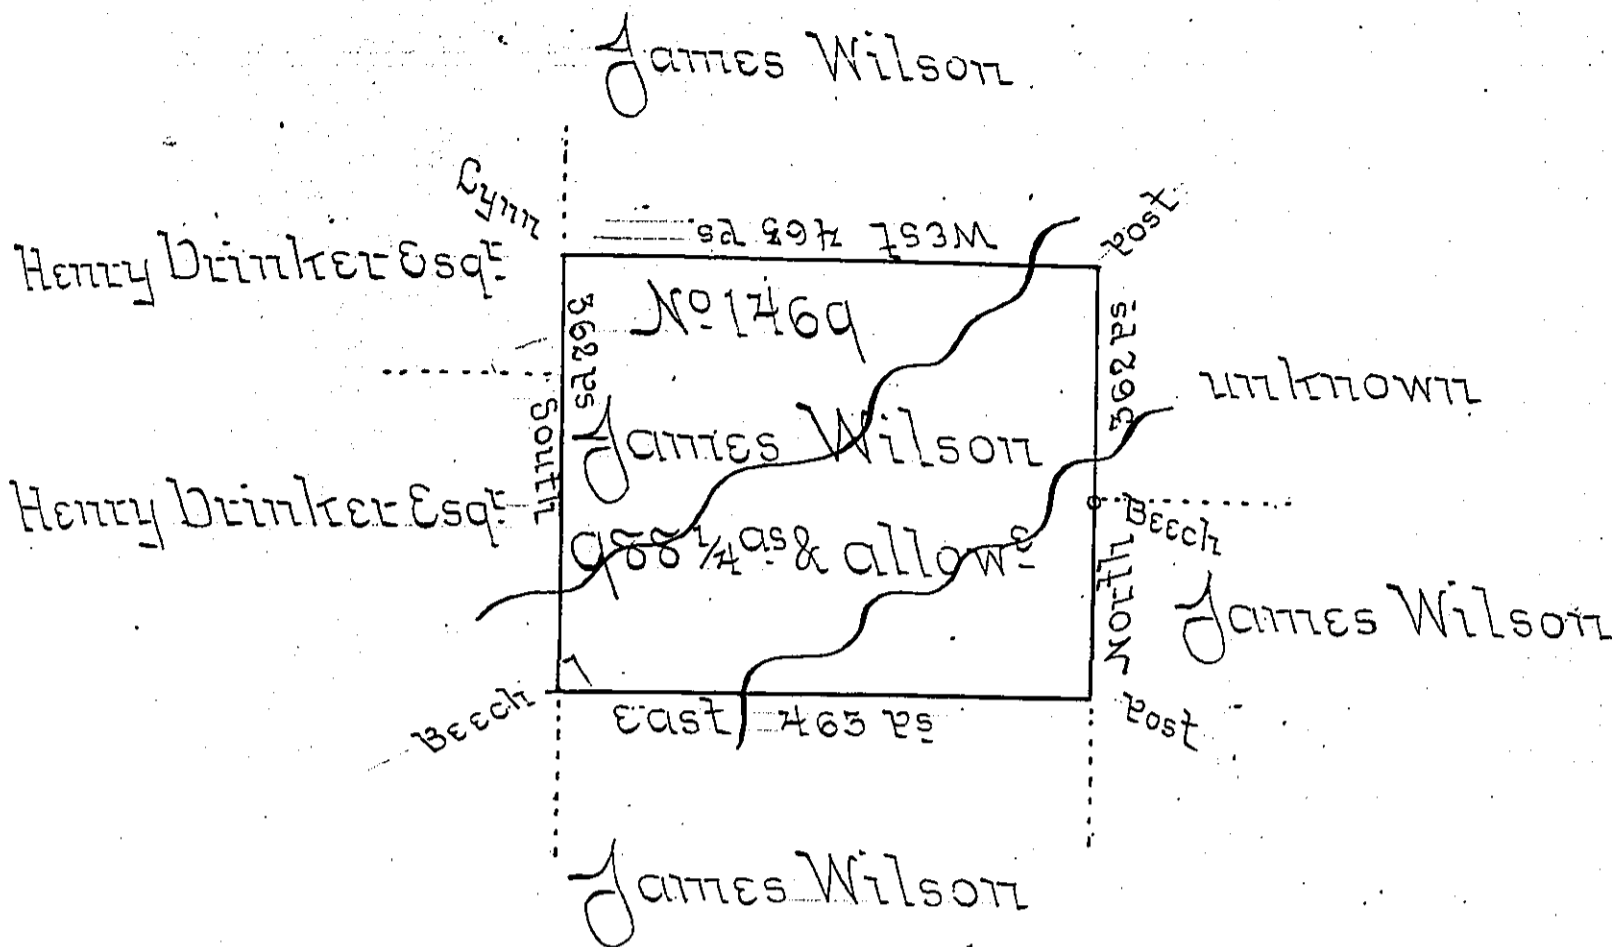 James Wilson
Lynn
West 463 ps
Post
Henry Drinker Esqr
No 1469
362 ps
South
362 ps
North
unknown
James Wilson
Henry Drinker Esqr
988 1/4 as & allowe
Beech
James Wilson
Beech
East 463 ps
Post
James Wilson